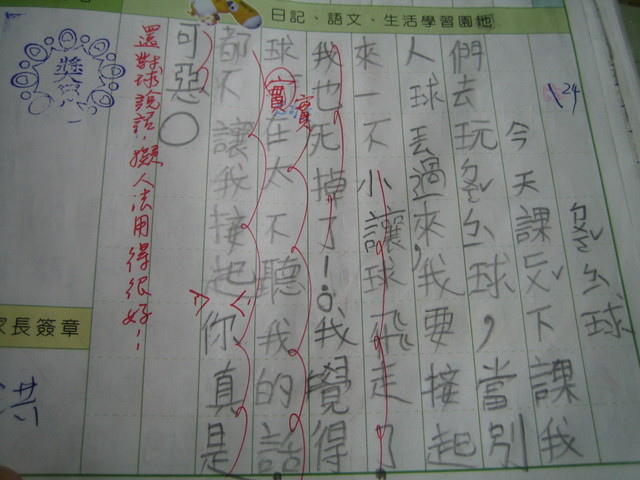 日記、語文、生活學習園地
24
球
今天課下課我
們去玩球，當別
人球丟過來，我要接起
來一不小讓球飛走了
我也死掉了！。我覺得
球在太不聽我的話
實
都不讓我接起你真是
可惡○
還對球說話，擬人法用得很好！
獎
家長簽章
洪